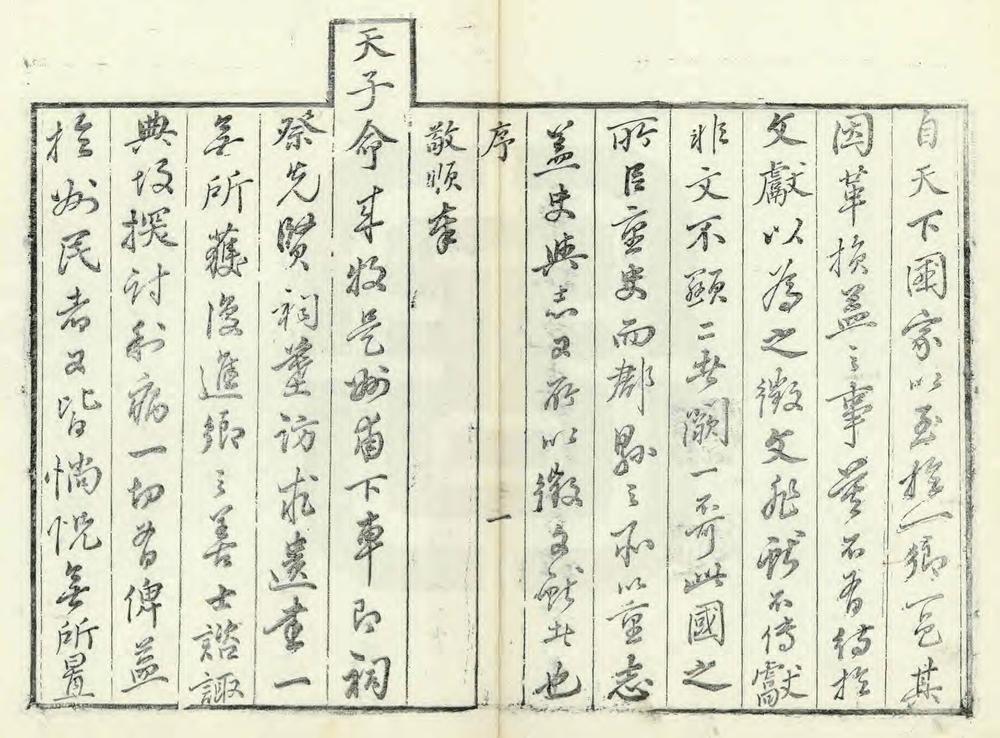 自天下國家以至於一鄉一邑其
因革損益之事莫不有待於
文獻以為之徵文非獻不傳獻
非文不顯二者闕一不可此國之
所以重史而郡縣之所以重志
蓋史與志又所以徵文獻者也
序
一
敬順奉
天子命來牧是州甫下車即祠
祭先賢祠墓訪求遺書一
無所獲復進鄉之善士諮諏
典故探討利病一切有俾益
於州民者又皆惝怳無所置